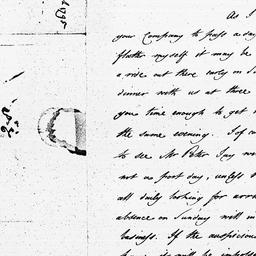 1795
As I
your Company to pass a day
flatter myself it may be
a ride out there early on S
dinner with us at three
give time enough to get
the same evening. I of co
to see Mr Peter Jay
not no post day, unless
all daily looking for arri
absence on Sunday will in
business. If the auspicious